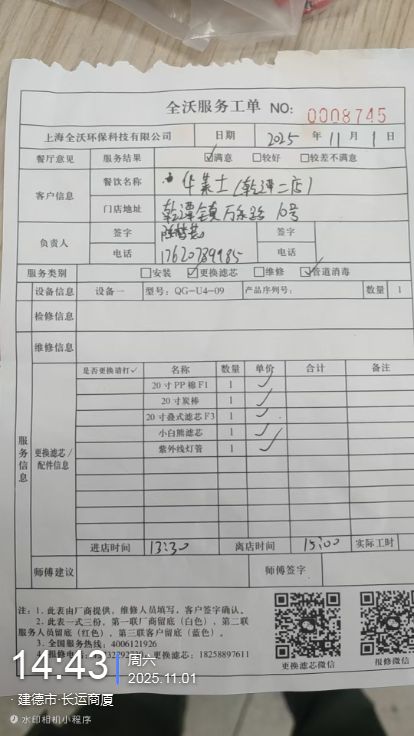 全沃服务工单 NO: 0008745
上海全沃环保科技有限公司 日期 2025 年 11 月 1 日
餐厅意见 服务结果 ☑满意 □较好 □较差不满意
客户信息 餐饮名称 华莱士(乾潭二店)
门店地址 乾潭镇 6号
负责人 签字 签字
电话 17620789985 电话
服务类别 □安装 ☑更换滤芯 □维修 ☑管道消毒
设备信息 设备一 型号: QG-U4-09 产品序列号: 数量 1
检修信息
维修信息
服务信息 更换滤芯/配件信息
是否更换请打✓ 名称 数量 单价 合计 备注
20寸PP棉F1 1 ✓
20寸炭棒 1 ✓
20寸叠式滤芯F3 1 ✓
小白熊滤芯 1 ✓
紫外线灯管 1 ✓
进店时间 13:30 离店时间 15:00 实际工时
师傅建议 师傅签字
注: 1. 此表由厂商提供, 维修人员填写, 客户签字确认。
2. 此表一式三份, 第一联厂商留底(白色), 第二联
服务人员留底(红色), 第三联客户留底(蓝色)。
3. 全国服务热线: 4006121926
更换滤芯: 18258897611
更换滤芯微信 报修微信
14:43 周六
2025.11.01
·建德市·长运商厦
水印相机小程序